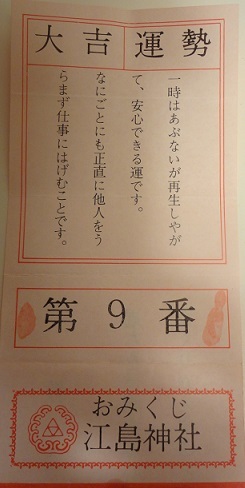 大吉運勢
一時はあぶないが再生しやが
て、安心できる運です。
なにごとにも正直に他人をう
らまず仕事にはげむことです。
第9番
おみくじ
江島神社